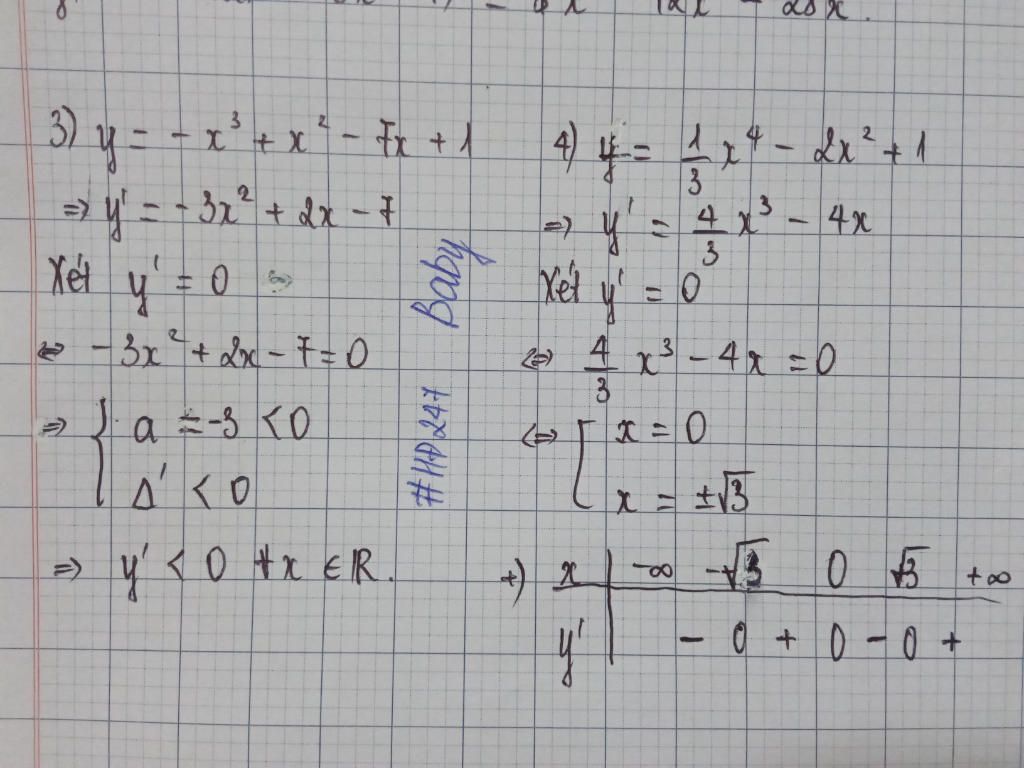 3) y = - x³ + x² - 7x + 1
⇒ y' = - 3x² + 2x - 7
Xét y' = 0
⇔ - 3x² + 2x - 7 = 0
⇒ { a = -3 < 0
Δ' < 0
⇒ y' < 0 ∀x ∈ R.
#HD247 Baby
4) y = 1/3 x⁴ - 2x² + 1
⇒ y' = 4/3 x³ - 4x
Xét y' = 0
⇔ 4/3 x³ - 4x = 0
⇔ [ x = 0
x = ±√3
+) x | -∞ -√3 0 √3 +∞
y' | - 0 + 0 - 0 +